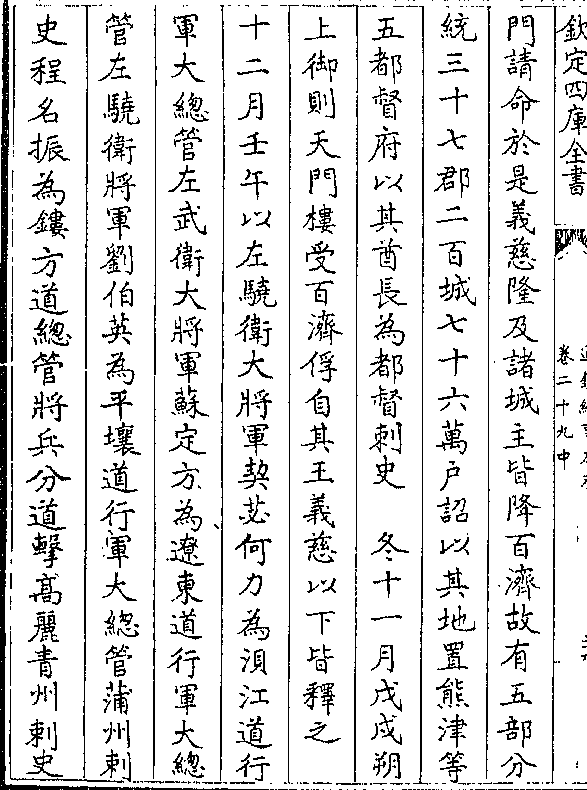 欽定四庫全書
卷二十九中
門請命於是義慈隆及諸城主皆降百濟故有五部分
統三十七郡二百城七十六萬户詔以其地置熊津等
五都督府以其酋長為都督刺史　冬十一月戊戌朔
上御則天門樓受百濟俘自其王義慈以下皆釋之
十二月壬午以左驍衛大將軍契苾何力為浿江道行
軍大總管左武衛大將軍蘇定方為遼東道行軍大總
管左驍衛將軍劉伯英為平壤道行軍大總管蒲州刺
史程名振為鏤方道總管將兵分道擊髙麗青州刺史